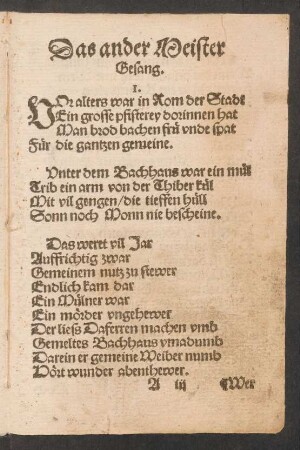 Das ander Meister
Gesang.
1.
VOr alters war in Rom der Stadt
Ein grosse pfisterey dorinnen hat
Man brod bachen frü vnde spat
Für die gantzen gemeine.
Vnter dem Bachhaus war ein mül
Trib ein arm von der Thiber kül
Mit vil gengen/die tieffen hüll
Sonn noch Monn nie bescheine.
Das weret vil Jar
Auffrichtig zwar
Gemeinem nutz zu stewer
Endlich kam dar
Ein Mülner war
Ein mörder vngehewer
Der ließ Daferren machen vmb
Gemeltes Bachhaus vmadumb
Darein er gemeine Weiber numb
Hört wunder abenthewer.
A iij ¶Wer